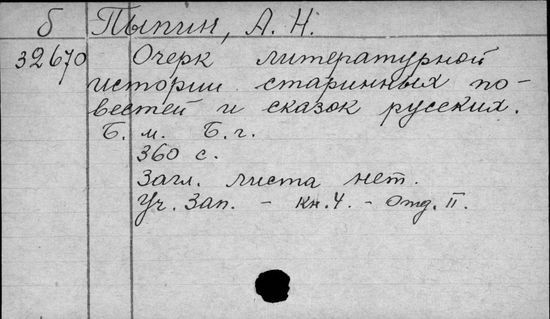 б Пыпин, А. Н.
32670 Очерк литературной
истории старинных по-
вестей и сказок русских.
Б. м. Б. г.
360 с.
Загл. листа нет.
Уч. Зап. - Кн. 4. - Отд. II.